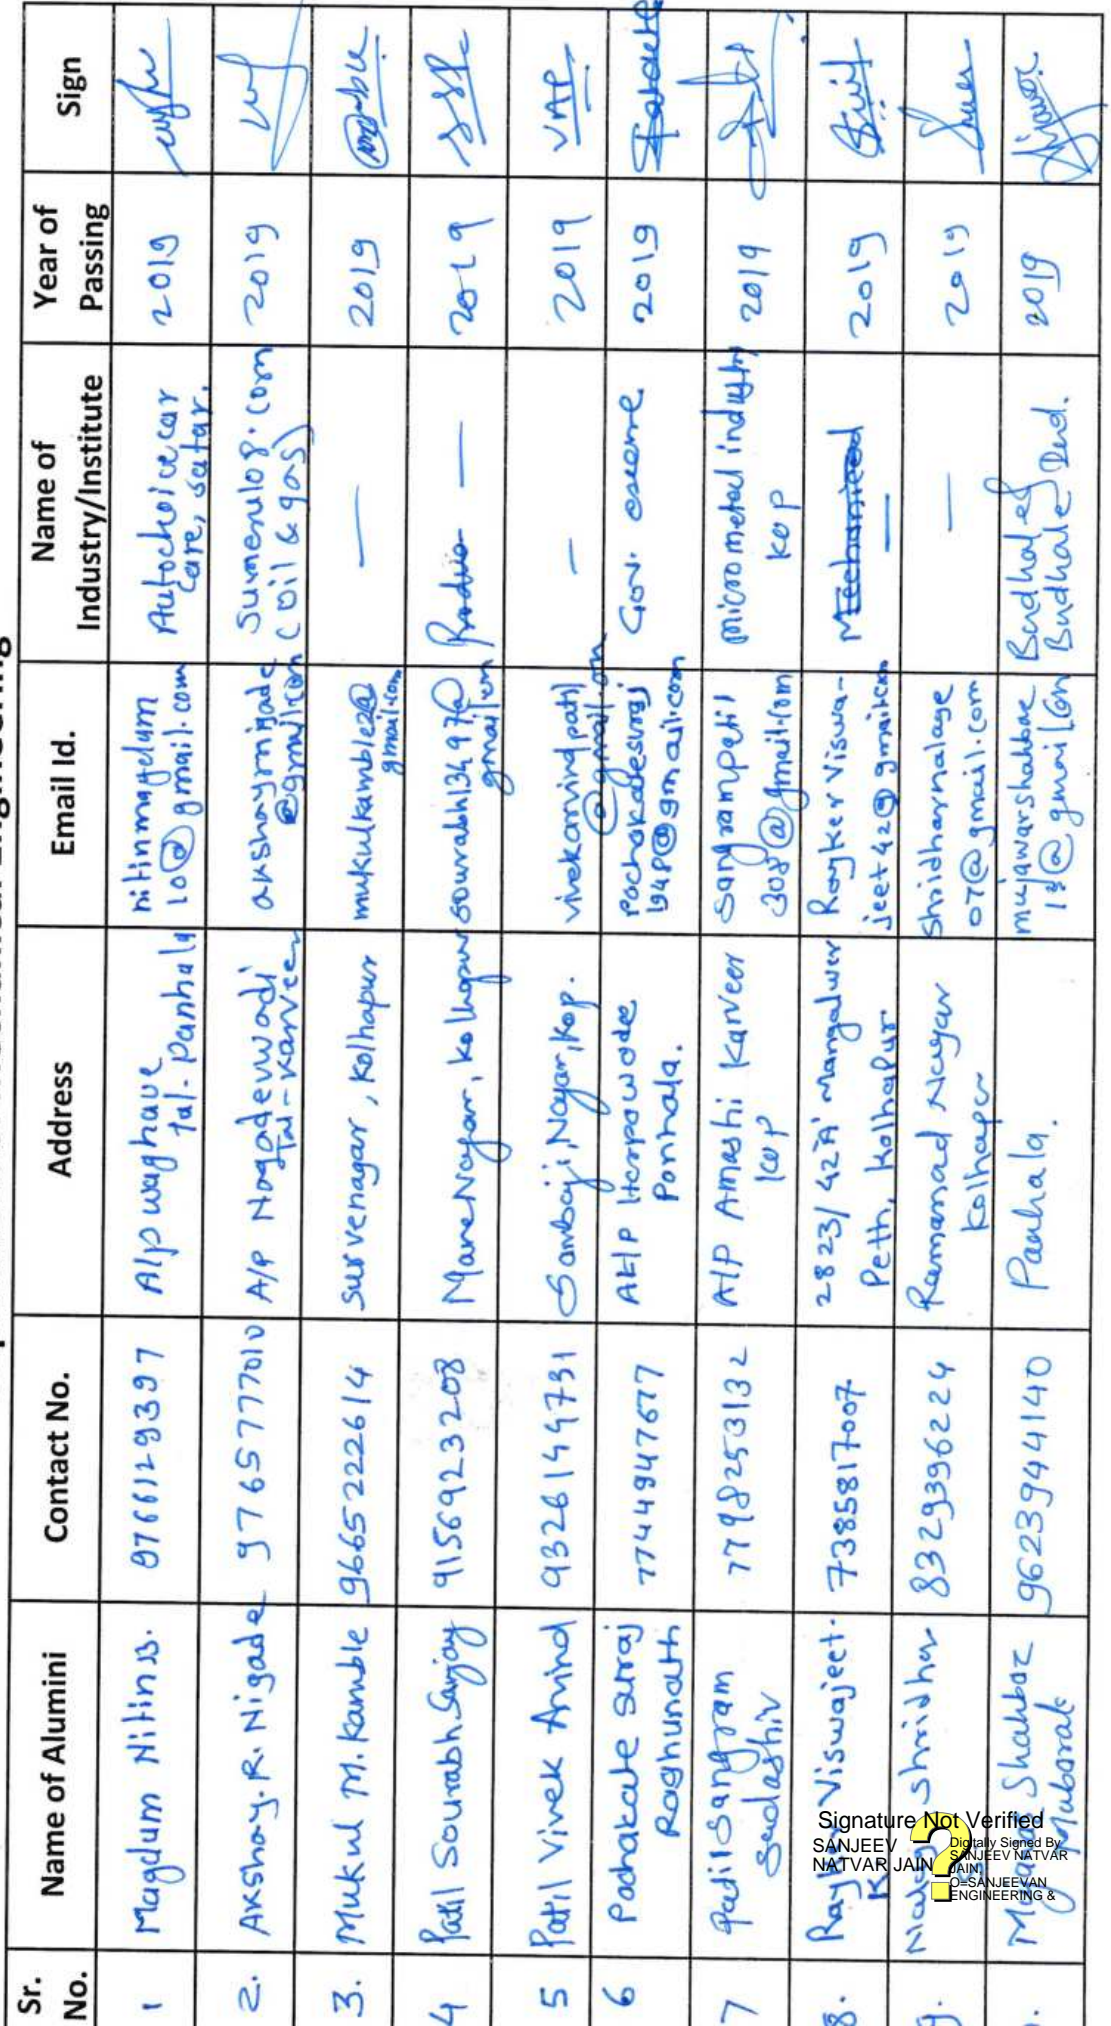 Sr.
No.
Name of Alumini
Contact No.
Address
Email Id.
Name of
Industry/Institute
Year of
Passing
Sign
1
Magdum Nitin B.
9766129397
A/p waghave
tal - Panhala
nitinmagdum
10@gmail.com
Autochoice car
care, satar.
2019
2.
Akshay. R. Nigade
9765777010
A/P Nagadevwadi
Tal - Karveer
akshaynigade
@gmail.com
(oil & gas)
2019
3.
Mukul M. Kamble
9665222614
Survenagar, Kolhapur
mukulkamble2@
gmail.com
—
2019
4
Patil Sourabh Sanjay
9156923208
Mane Nagar, Kolhapur
sourabh13497@
gmail.com
—
2019
5
Patil Vivek Arvind
9326144731
Sambaji Nagar, Kop.
vivekarvindpatil
@gmail.com
—
2019
VAP
6
Pachakate Suraj
Raghunath
7744947677
Panhala.
Gov.
2019
7
Patil Sangram
Sadashiv
7798253132
A/P Amashi Karveer
Kop
sangrampatil
308@gmail.com
micro metal industry
Kop
2019
8.
Viswajeet.
K.
7385817007
2823/42 'A' Mangalwar
Peth, Kolhapur
Raykar Viswa-
jeet42@gmail.com
—
2019
9.
Shridhar
8329396224
Ramanad Nagar
Kolhapur
Shridharnalage
07@gmail.com
—
2019
Shahbaz
Mubarak
9623944140
Panhala.
mujawarshahbaz
18@gmail.com
Budhale &
Budhale Ind.
2019
Signature Not Verified
SANJEEV
NATVAR JAIN
Digitally Signed By
SANJEEV NATVAR
JAIN,
O=SANJEEVAN
ENGINEERING &